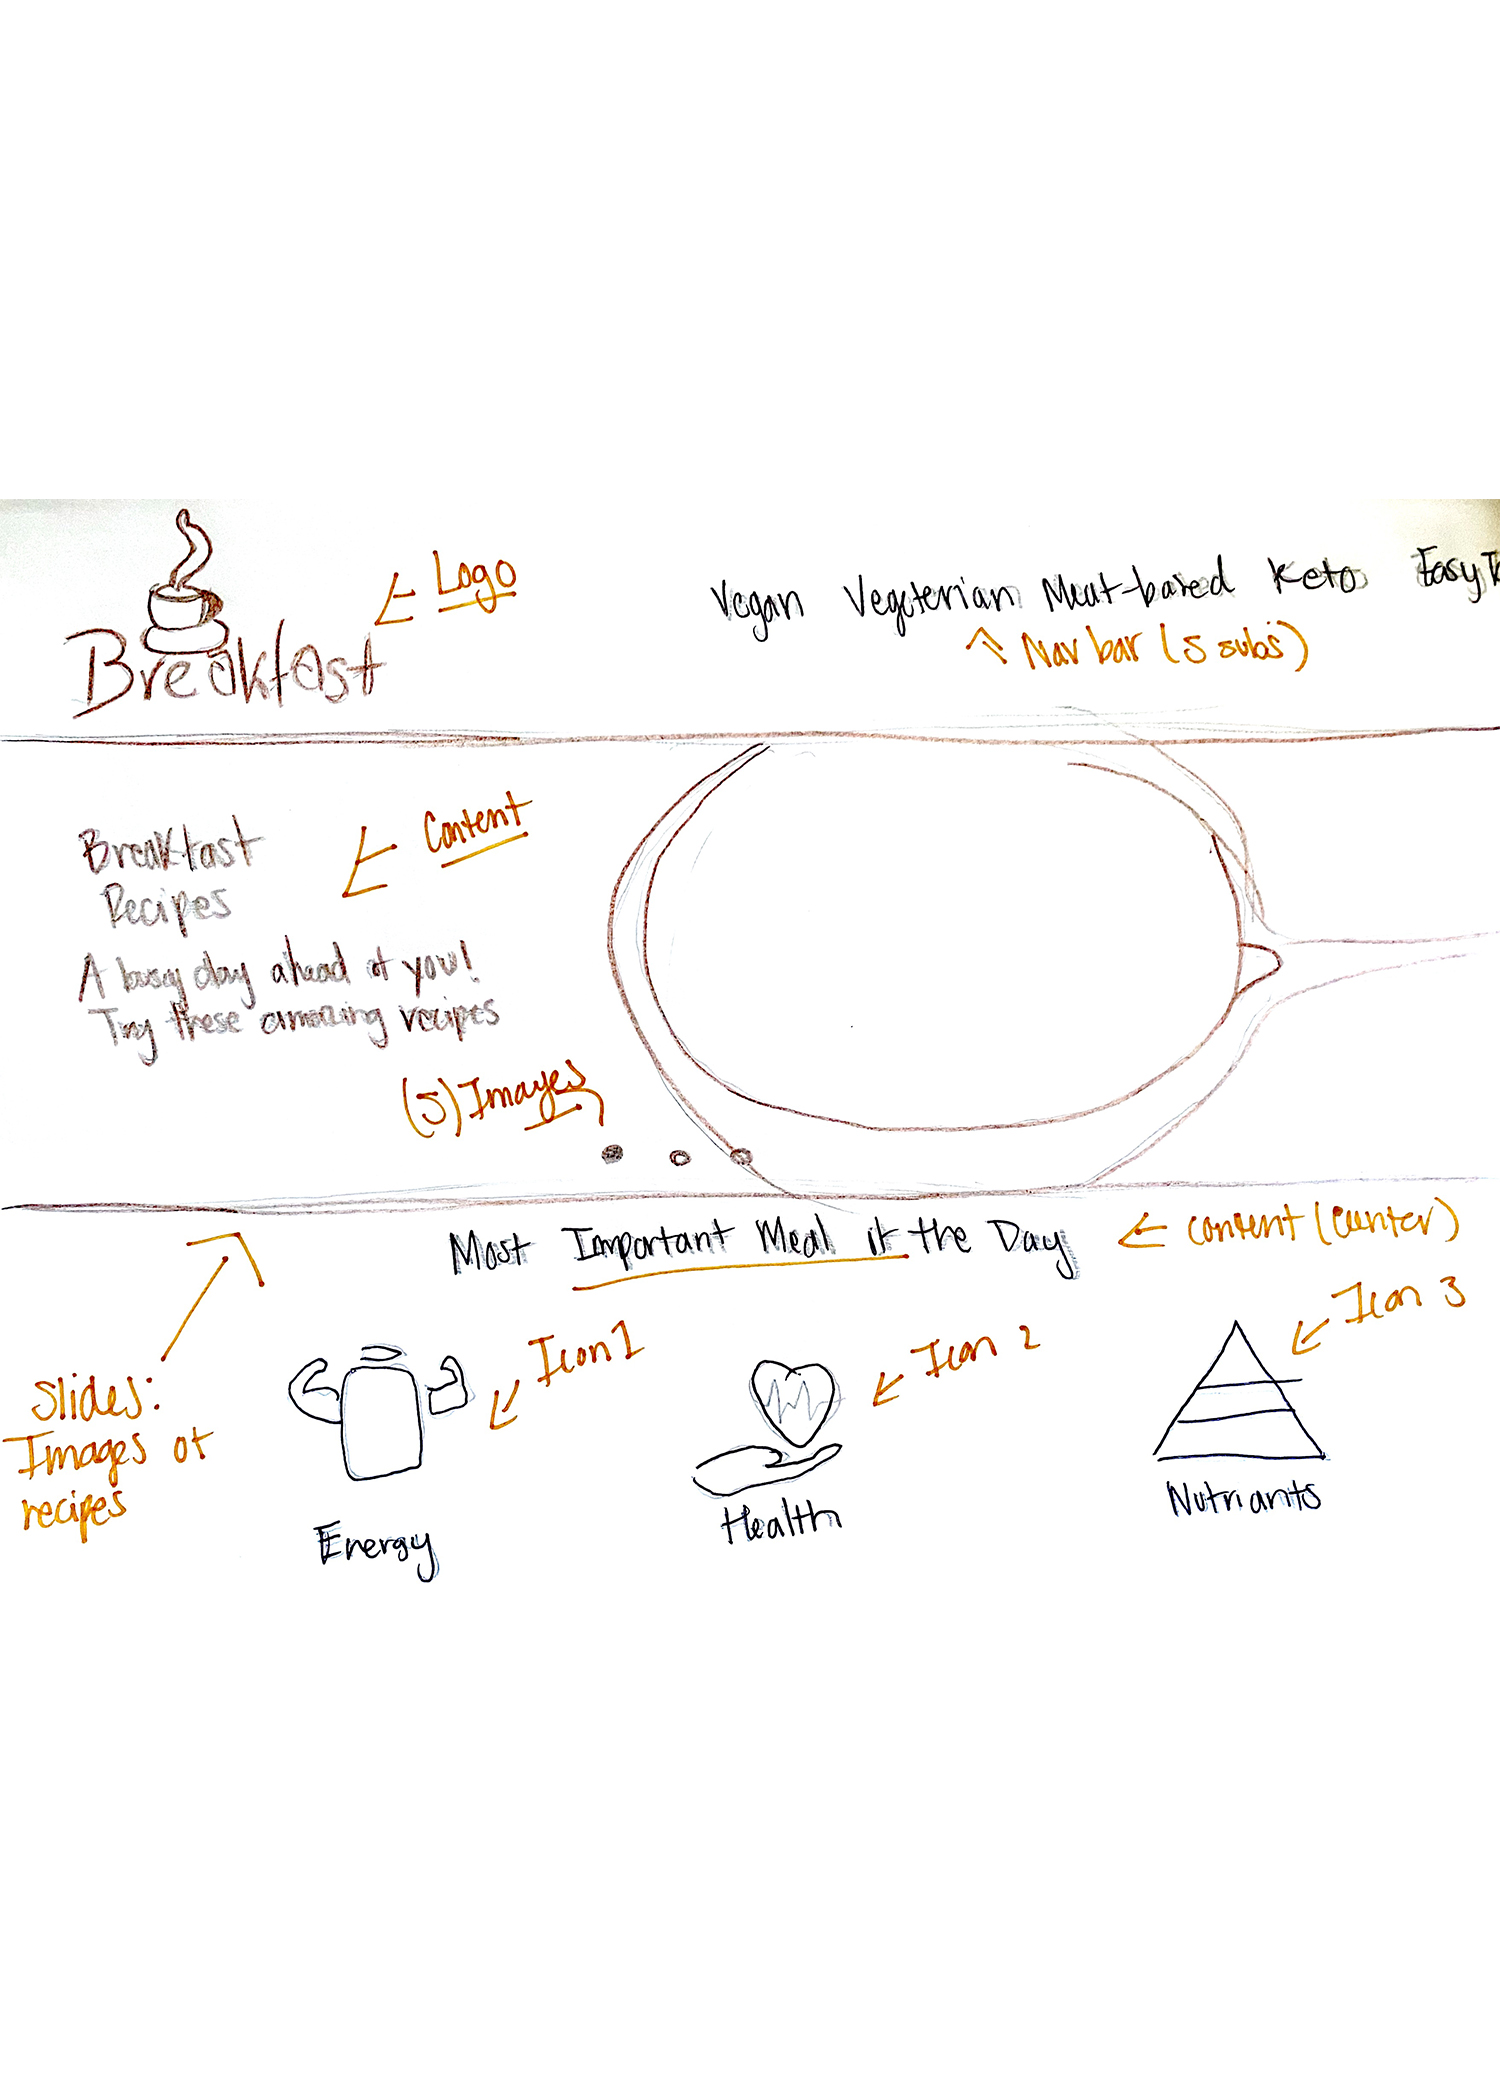 Logo
Breakfast
Vegan Vegeterian Meat-based Keto Easy
Nav bar (5 subs)
Breakfast
Recipes
Content
A busy day ahead of you!
Try these amazing recipes
(5) Images
Most Important Meal if the Day
content (center)
Slides:
Images of
recipes
Icon 1
Icon 2
Icon 3
Energy
Health
Nutriants